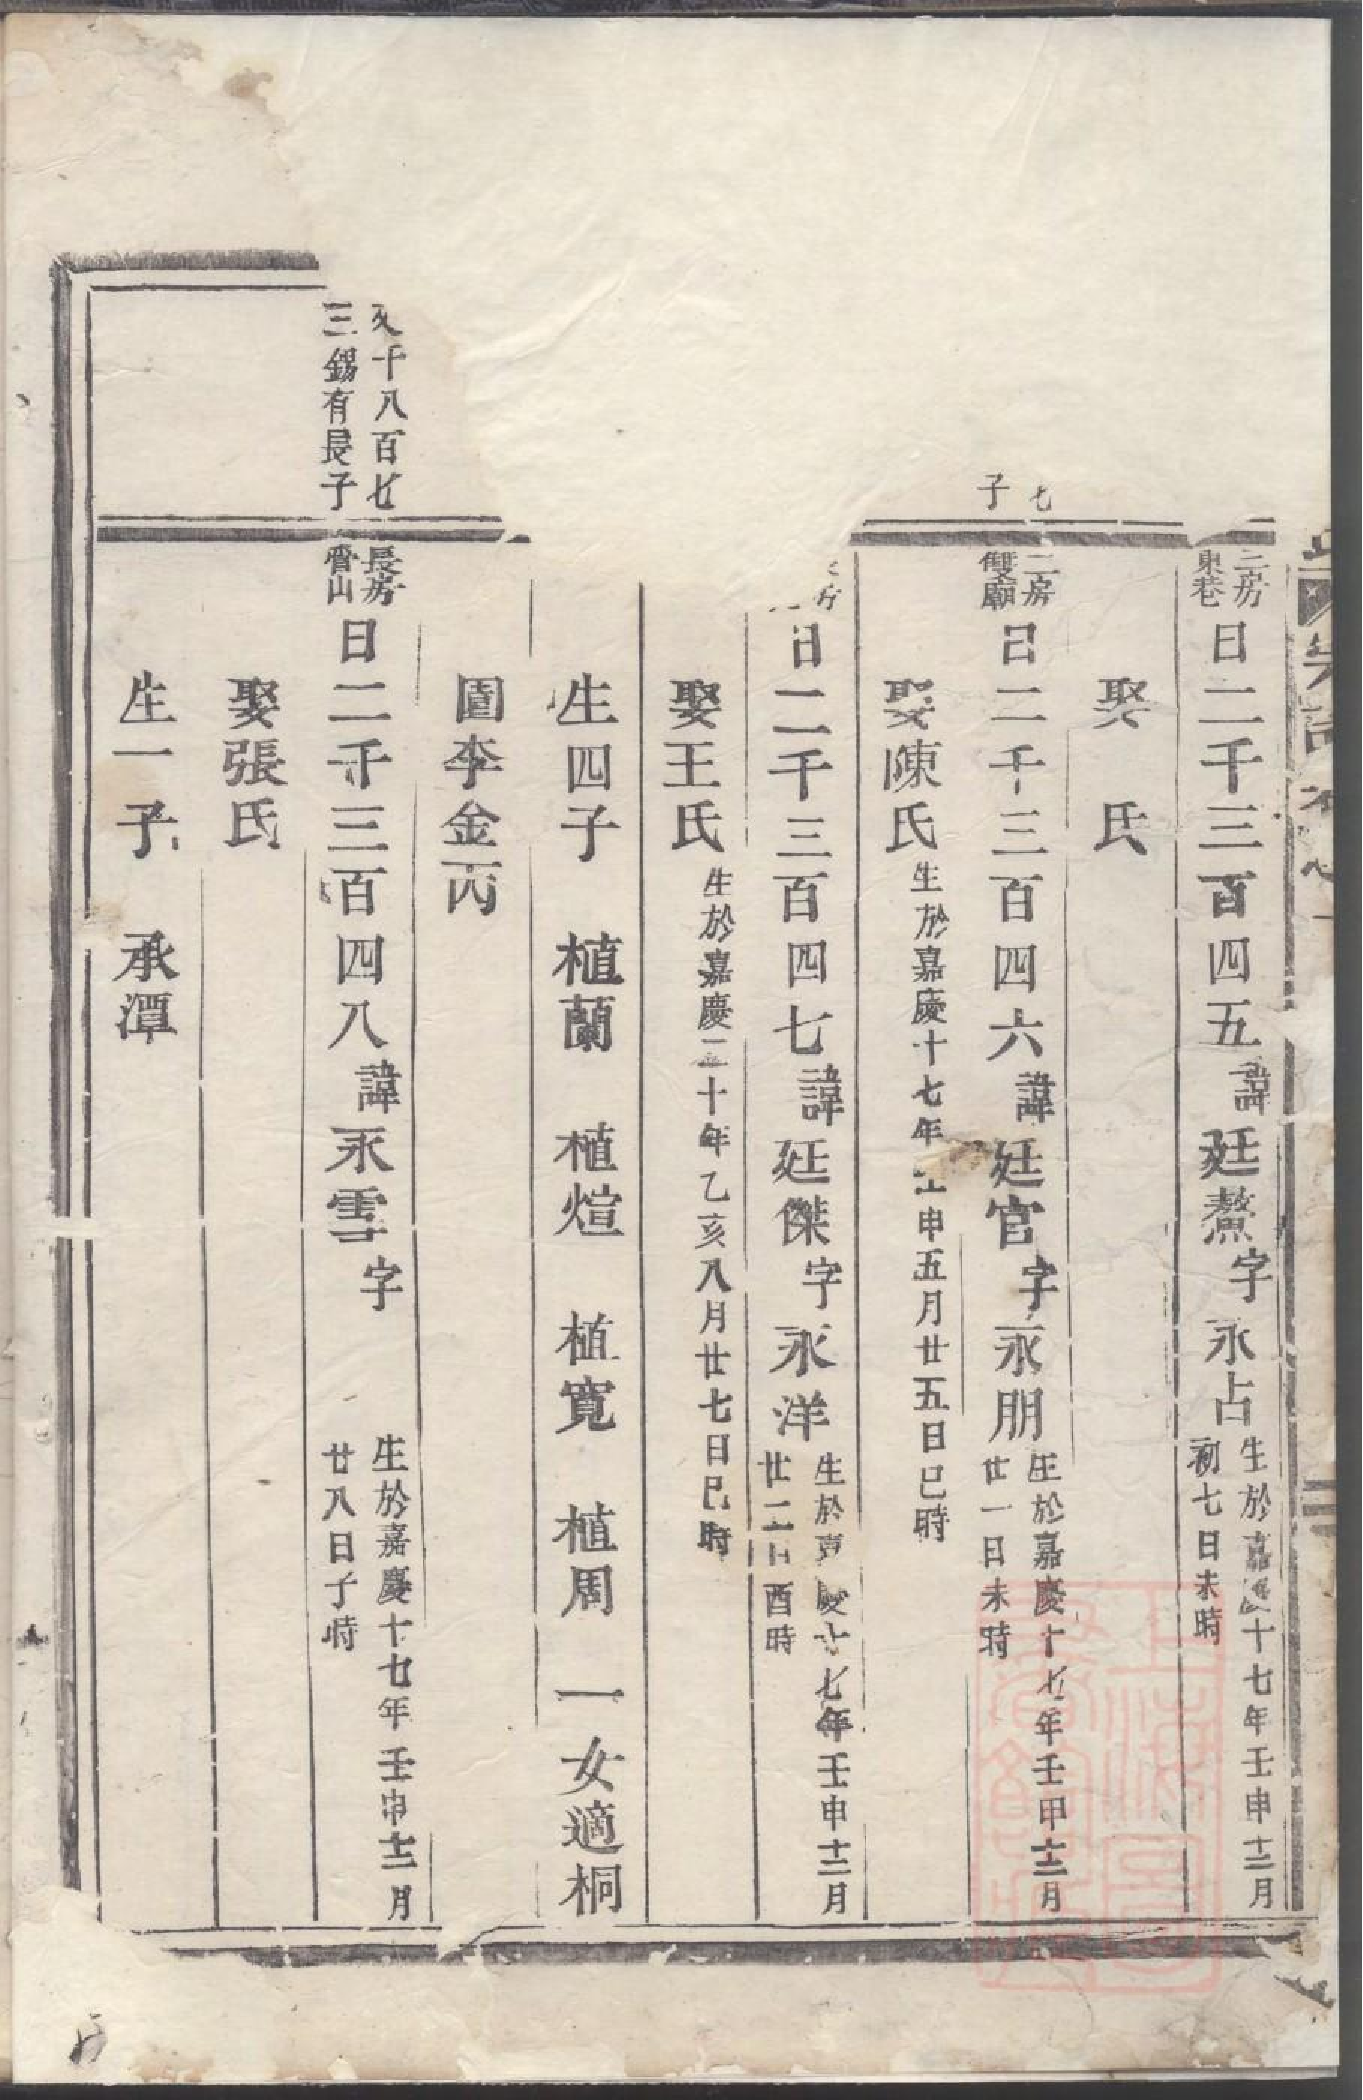 二房東巷
曰二千三百四五諱廷鰲字永占生於嘉慶十七年壬申十二月初七日未時
娶 氏
七
子
二房雙廟
曰二千三百四六諱廷官字永朋生於嘉慶十七年壬申十二月廿一日未時
娶陳氏生於嘉慶十七年壬申五月廿五日巳時
房
曰二千三百四七諱廷傑字永洋生於嘉慶十七年壬申十二月廿二日酉時
娶王氏生於嘉慶二十年乙亥八月廿七日巳時
生四子 植蘭 植煊 植寬 植周 一女適桐
圓李金丙
千八百七
三錫有長子
長房骨山
曰二千三百四八諱永雪字 生於嘉慶十七年壬申十二月廿八日子時
娶張氏
生一子 承潭